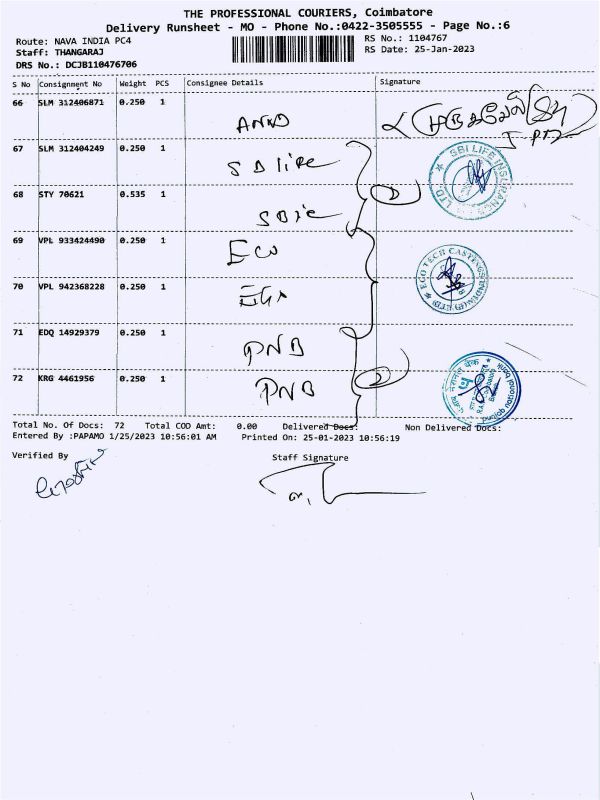 THE PROFESSIONAL COURIERS, Coimbatore
Delivery Runsheet - MO - Phone No.:0422-3505555 - Page No.:6
Route: NAVA INDIA PC4 RS No.: 1104767
Staff: THANGARAJ RS Date: 25-Jan-2023
DRS No.: DCJB110476706
S No Consignment No Weight PCS Consignee Details Signature
66 SLM 312406871 0.250 1
67 SLM 312404249 0.250 1 SBI life SBI LIFE INSURANCE LTD.
68 STY 70621 0.535 1
69 VPL 933424490 0.250 1 ECO ECO TECH CASTINGS
70 VPL 942368228 0.250 1
71 EDQ 14929379 0.250 1 PNB
72 KRG 4461956 0.250 1 PNB punjab national bank
Total No. Of Docs: 72 Total COD Amt: 0.00 Delivered Docs: Non Delivered Docs:
Entered By :PAPAMO 1/25/2023 10:56:01 AM Printed On: 25-01-2023 10:56:19
Verified By Staff Signature